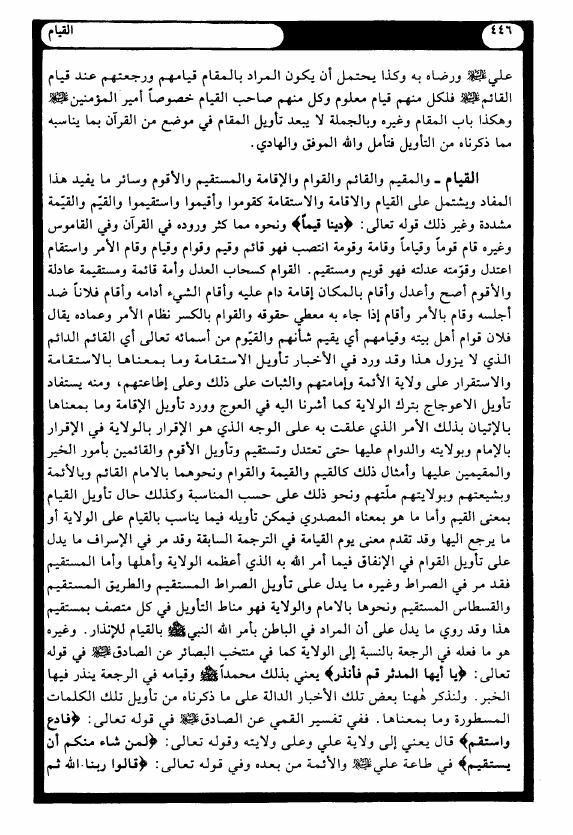 ٤٤٦
القيام
علي عليه السلام ورضاه به وكذا يحتمل أن يكون المراد بالمقام قيامهم ورجعتهم عند قيام
القائم عليه السلام فلكل منهم قيام معلوم وكل منهم صاحب القيام خصوصاً أمير المؤمنين عليه السلام
وهكذا باب المقام وغيره وبالجملة لا يبعد تأويل المقام في موضع من القرآن بما يناسبه
مما ذكرناه من التأويل فتأمل والله الموفق والهادي.
القيام ـ والمقيم والقائم والقوام والإقامة والمستقيم والأقوم وسائر ما يفيد هذا
المفاد ويشتمل على القيام والاقامة والاستقامة كقوموا وأقيموا واستقيموا والقيّم والقيّمة
مشددة وغير ذلك قوله تعالى: ﴿دينا قيماً﴾ ونحوه مما كثر وروده في القرآن وفي القاموس
وغيره قام قوماً وقياماً وقامة وقومة انتصب فهو قائم وقيم وقوام وقيام وقام الأمر واستقام
اعتدل وقوّمته عدلته فهو قويم ومستقيم. القوام كسحاب العدل وأمة قائمة ومستقيمة عادلة
والأقوم أصح وأعدل وأقام بالمكان إقامة دام عليه وأقام الشيء أدامه وأقام فلاناً ضد
أجلسه وقام بالأمر وأقام إذا جاء به معطي حقوقه والقوام بالكسر نظام الأمر وعماده يقال
فلان قوام أهل بيته وقيامهم أي يقيم شأنهم والقيّوم من أسمائه تعالى أي القائم الدائم
الذي لا يزول هذا وقد ورد في الأخبار تأويل الاستقامة وما بمعناها بالاستقامة
والاستقرار على ولاية الأئمة وإمامتهم والثبات على ذلك وعلى إطاعتهم، ومنه يستفاد
تأويل الاعوجاج بترك الولاية كما أشرنا اليه في العوج وورد تأويل الإقامة وما بمعناها
بالإتيان بذلك الأمر الذي علقت به على الوجه الذي هو الإقرار بالولاية في الإقرار
بالإمام وبولايته والدوام عليها حتى تعتدل وتستقيم وتأويل الأقوم والقائمين بأمور الخير
والمقيمين عليها وأمثال ذلك كالقيم والقيمة والقوام ونحوهما بالامام القائم وبالأئمة
وبشيعتهم وبولايتهم ملّتهم ونحو ذلك على حسب المناسبة وكذلك حال تأويل القيام
بمعنى القيم وأما ما هو بمعناه المصدري فيمكن تأويله فيما يناسب بالقيام على الولاية أو
ما يرجع اليها وقد تقدم معنى يوم القيامة في الترجمة السابقة وقد مر في الإسراف ما يدل
على تأويل القوام في الإنفاق فيما أمر الله به الذي أعظمه الولاية وأهلها وأما المستقيم
فقد مر في الصراط وغيره ما يدل على تأويل الصراط المستقيم والطريق المستقيم
والقسطاس المستقيم ونحوها بالامام والولاية فهو مناط التأويل في كل متصف بمستقيم
هذا وقد روي ما يدل على أن المراد في الباطن بأمر الله النبي ﷺ بالقيام للإنذار. وغيره
هو ما فعله في الرجعة بالنسبة إلى الولاية كما في منتخب البصائر عن الصادق عليه السلام في قوله
تعالى: ﴿يا أيها المدثر قم فأنذر﴾ يعني بذلك محمداً ﷺ وقيامه في الرجعة ينذر فيها
الخبر. ولنذكر ههنا بعض تلك الأخبار الدالة على ما ذكرناه من تأويل تلك الكلمات
المسطورة وما بمعناها. ففي تفسير القمي عن الصادق عليه السلام في قوله تعالى: ﴿فادع
واستقم﴾ قال يعني إلى ولاية علي وعلى ولايته وقوله تعالى: ﴿لمن شاء منكم أن
يستقيم﴾ في طاعة علي عليه السلام والأئمة من بعده وفي قوله تعالى: ﴿قالوا ربنا الله ثم